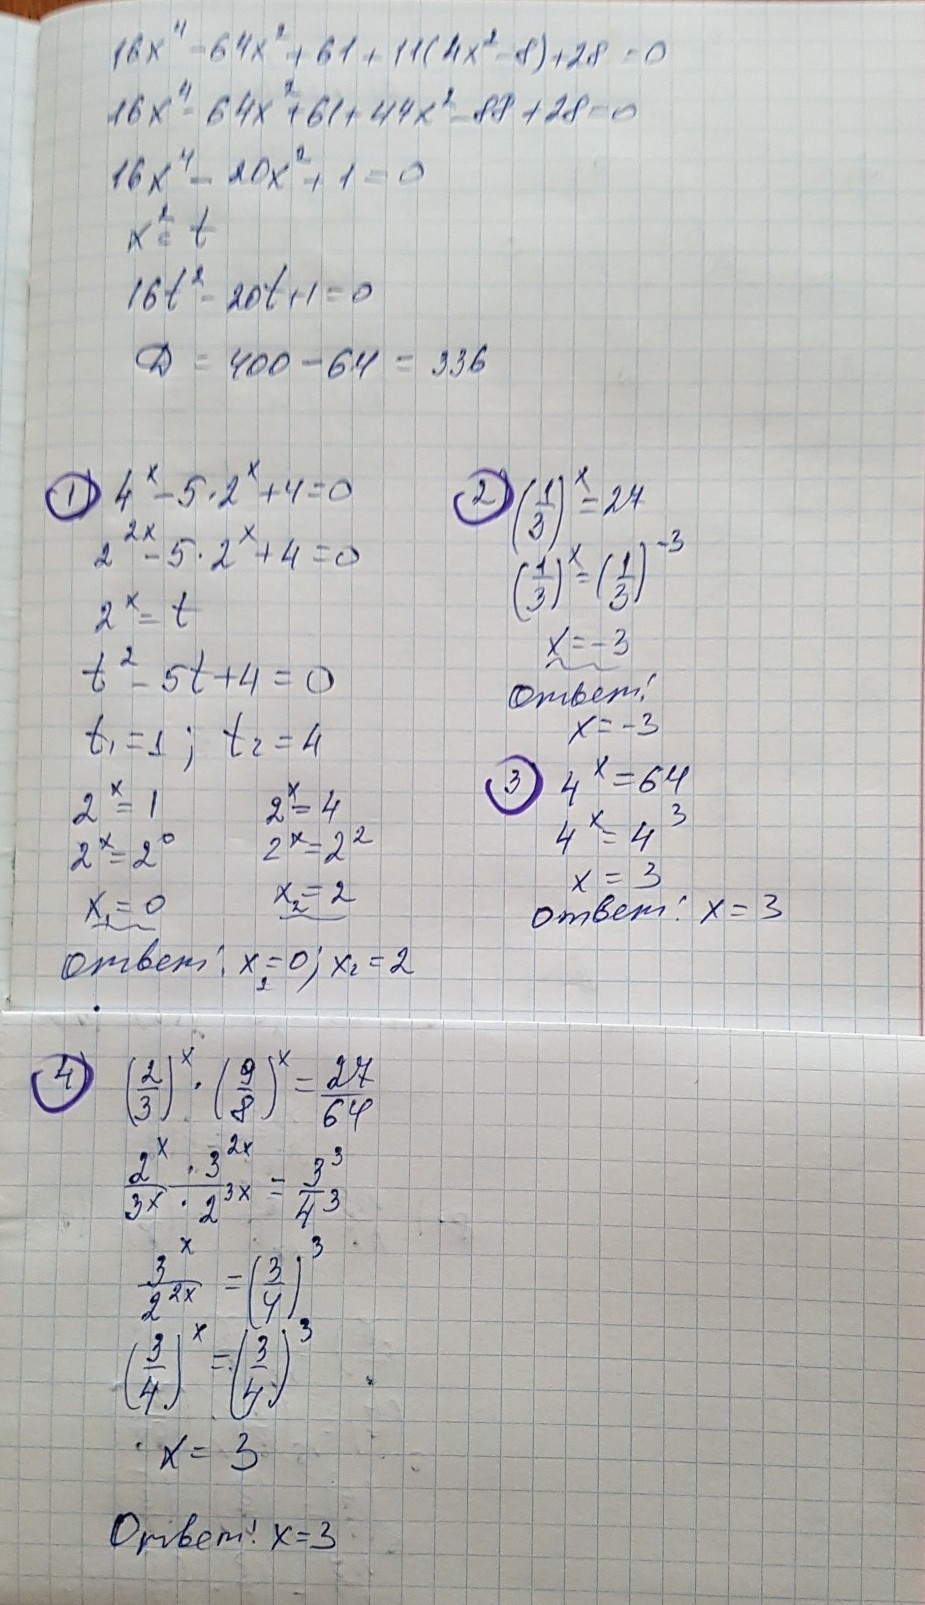 16x⁴ - 64x² + 61 + 11(4x² - 8) + 28 = 0
16x⁴ - 64x² + 61 + 44x² - 88 + 28 = 0
16x⁴ - 20x² + 1 = 0
x² = t
16t² - 20t + 1 = 0
D = 400 - 64 = 336
1) 4ˣ - 5·2ˣ + 4 = 0
2²ˣ - 5·2ˣ + 4 = 0
2ˣ = t
t² - 5t + 4 = 0
t₁ = 1; t₂ = 4
2ˣ = 1 2ˣ = 4
2ˣ = 2⁰ 2ˣ = 2²
x₁ = 0 x₂ = 2
Ответ: x₁ = 0; x₂ = 2
2) (1/3)ˣ = 27
(1/3)ˣ = (1/3)⁻³
x = -3
Ответ:
x = -3
3) 4ˣ = 64
4ˣ = 4³
x = 3
Ответ: x = 3
4) (2/3)ˣ · (9/8)ˣ = 27/64
2ˣ · 3²ˣ / 3ˣ · 2³ˣ = 3³/4³
3ˣ/2²ˣ = (3/4)³
(3/4)ˣ = (3/4)³
x = 3
Ответ: x = 3